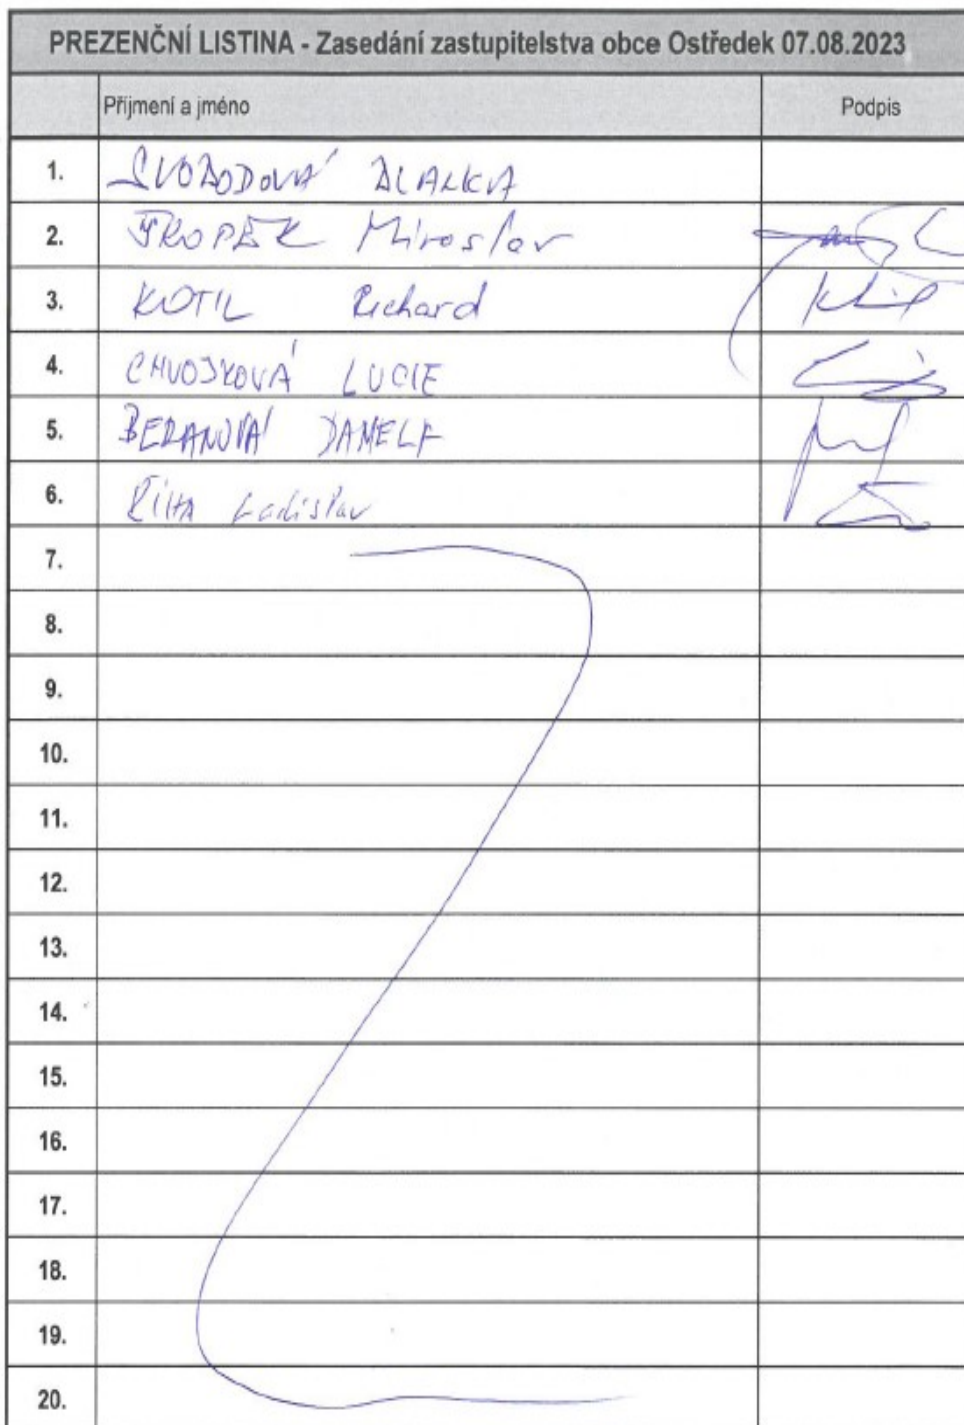 PREZENČNÍ LISTINA - Zasedání zastupitelstva obce Ostředek 07.08.2023
Příjmení a jméno Podpis
1. SVOBODOVÁ BLANKA
2. Miroslav
3. KOTIL Richard
4. CHVOJKOVÁ LUCIE
5. BERANOVÁ DANIELA
6. ŘÍHA Ladislav
7.
8.
9.
10.
11.
12.
13.
14.
15.
16.
17.
18.
19.
20.